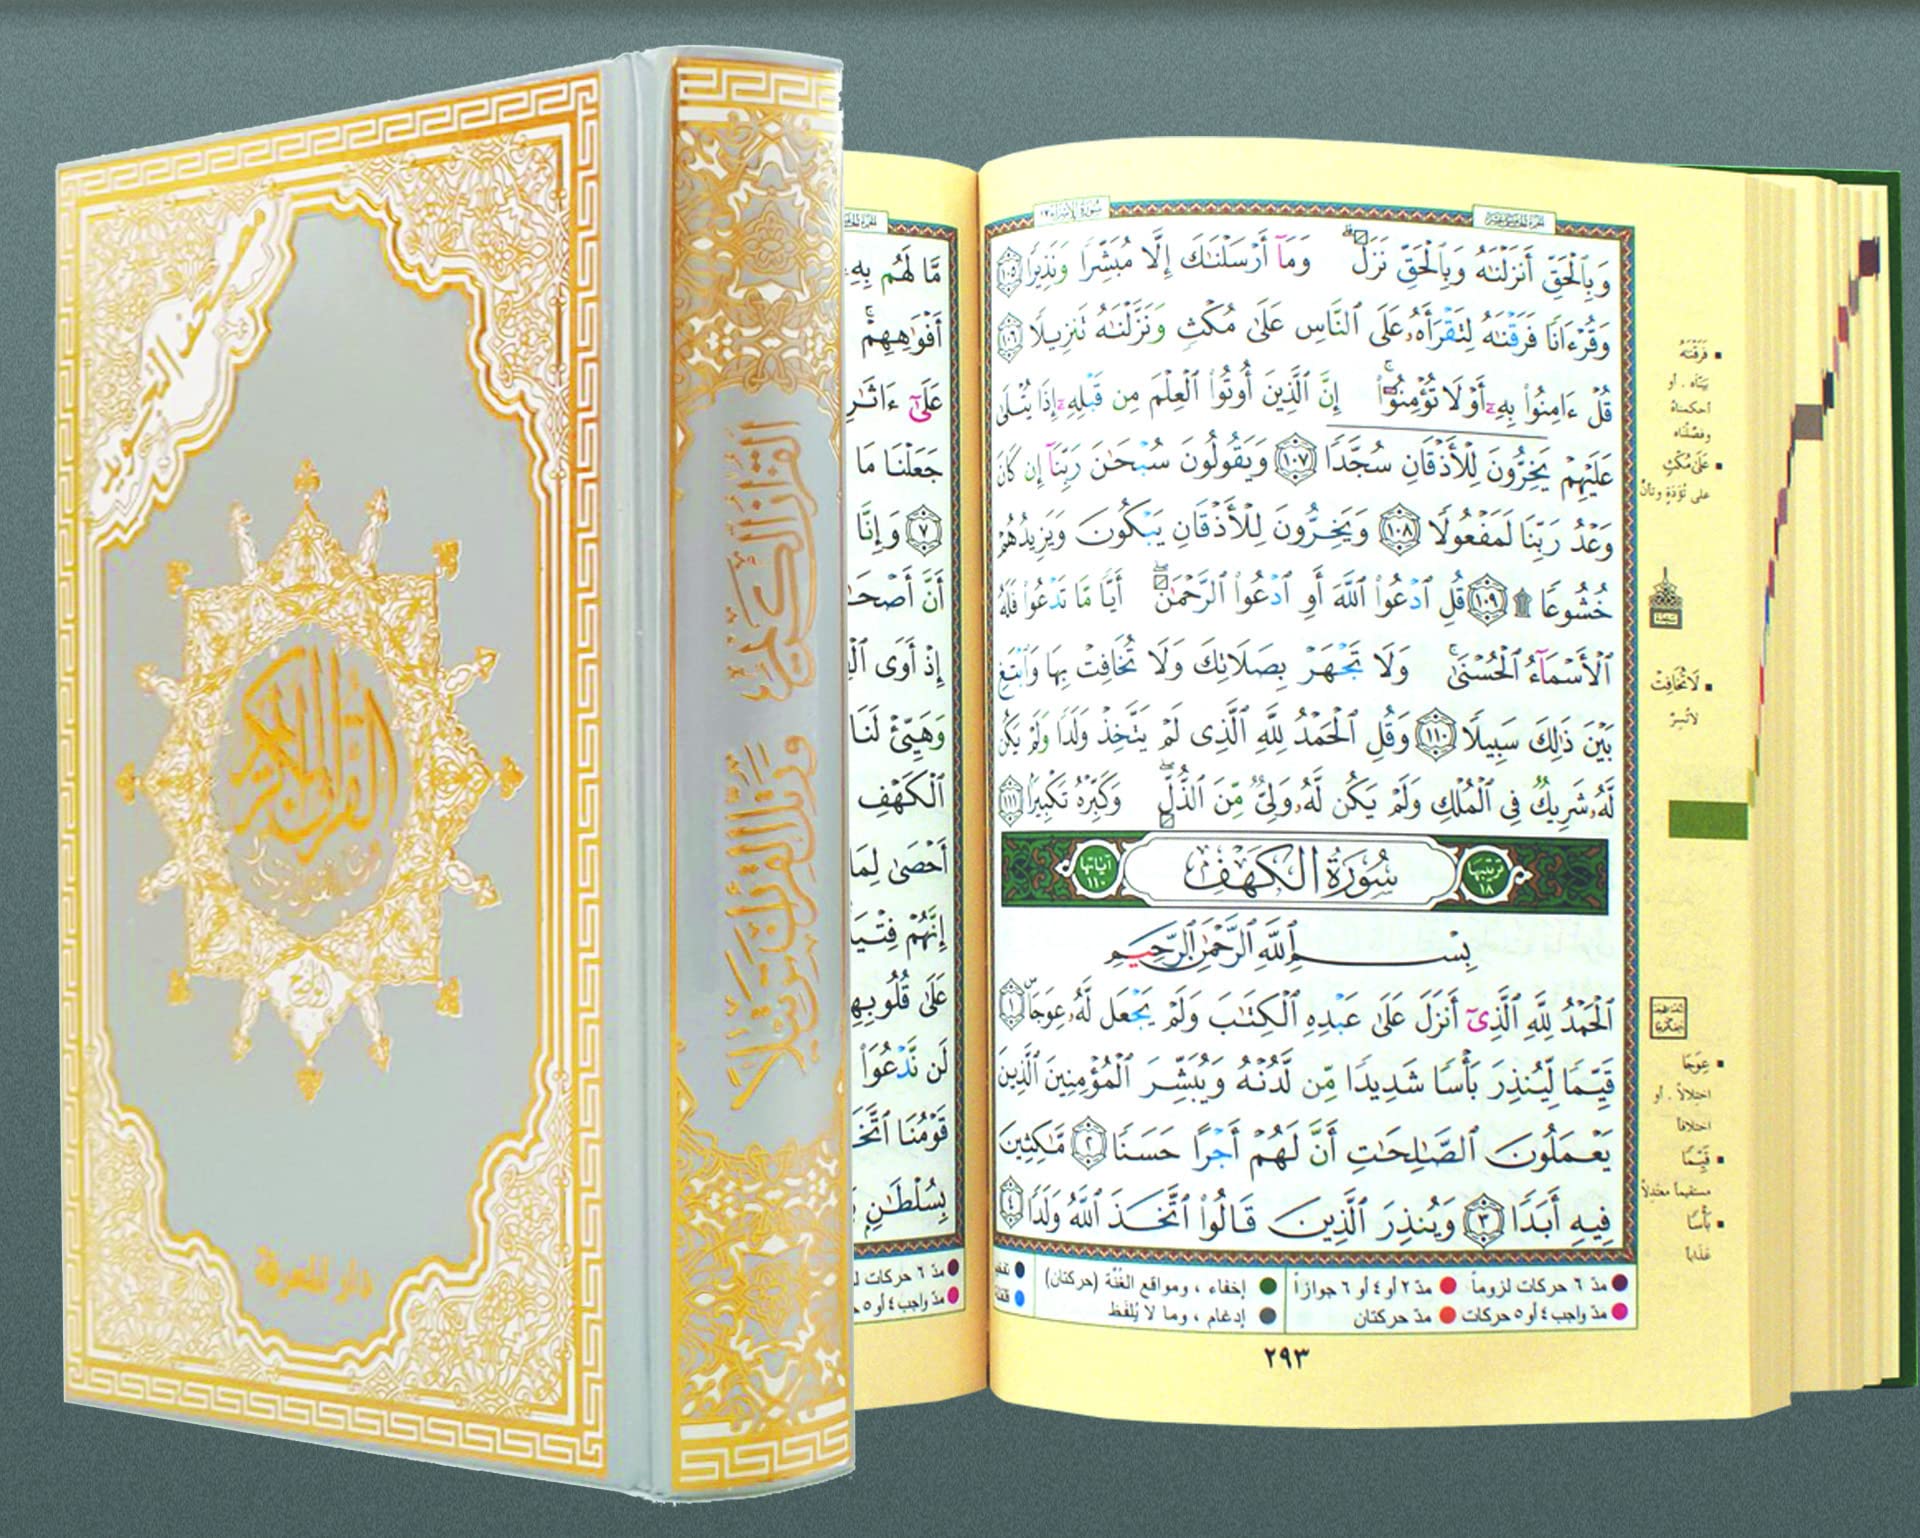 مصحف التجويد
القرآن الكريم
ورتل القرآن ترتيلا
الواضح
دار المعرفة
القرآن الكريم ورتل القرآن ترتيلا
مَّا لَهُم بِهِۦ
أَفْوَٰهِهِمْ
عَلَىٰٓ ءَاثَـٰرِ
جَعَلْنَا مَا
٧ وَإِنَّا
أَنَّ أَصْحَـٰ
إِذْ أَوَى ٱلْ
وَهَيِّئْ لَنَا
ٱلْكَهْفِ
أَحْصَىٰ لِمَا
إِنَّهُمْ فِتْيَةٌ
عَلَىٰ قُلُوبِهِ
لَن نَّدْعُوَا۟
قَوْمُنَا ٱتَّخَ
بِسُلْطَـٰنٍۭ
مدّ ٦ حركات لـ
مدّ واجب ٤ أو ٥ حـ
سُورَةُ الإِسْرَاء ١٧
الجزء الخامس عشر
وَبِٱلْحَقِّ أَنزَلْنَـٰهُ وَبِٱلْحَقِّ نَزَلَ ۗ وَمَآ أَرْسَلْنَـٰكَ إِلَّا مُبَشِّرًا وَنَذِيرًا ١٠٥
وَقُرْءَانًا فَرَقْنَـٰهُ لِتَقْرَأَهُۥ عَلَى ٱلنَّاسِ عَلَىٰ مُكْثٍ وَنَزَّلْنَـٰهُ تَنزِيلًا ١٠٦
قُلْ ءَامِنُوا۟ بِهِۦٓ أَوْ لَا تُؤْمِنُوٓا۟ ۚ إِنَّ ٱلَّذِينَ أُوتُوا۟ ٱلْعِلْمَ مِن قَبْلِهِۦٓ إِذَا يُتْلَىٰ
عَلَيْهِمْ يَخِرُّونَ لِلْأَذْقَانِ سُجَّدًا ١٠٧ وَيَقُولُونَ سُبْحَـٰنَ رَبِّنَآ إِن كَانَ
وَعْدُ رَبِّنَا لَمَفْعُولًا ١٠٨ وَيَخِرُّونَ لِلْأَذْقَانِ يَبْكُونَ وَيَزِيدُهُمْ
خُشُوعًا ۩ ١٠٩ قُلِ ٱدْعُوا۟ ٱللَّهَ أَوِ ٱدْعُوا۟ ٱلرَّحْمَـٰنَ ۖ أَيًّا مَّا تَدْعُوا۟ فَلَهُ
ٱلْأَسْمَآءُ ٱلْحُسْنَىٰ ۚ وَلَا تَجْهَرْ بِصَلَاتِكَ وَلَا تُخَافِتْ بِهَا وَٱبْتَغِ
بَيْنَ ذَٰلِكَ سَبِيلًا ١١٠ وَقُلِ ٱلْحَمْدُ لِلَّهِ ٱلَّذِى لَمْ يَتَّخِذْ وَلَدًا وَلَمْ يَكُن
لَّهُۥ شَرِيكٌ فِى ٱلْمُلْكِ وَلَمْ يَكُن لَّهُۥ وَلِىٌّ مِّنَ ٱلذُّلِّ ۖ وَكَبِّرْهُ تَكْبِيرًۢا ١١١
ترتيبها ١٨ سُورَةُ الكَهْفِ آياتها ١١٠
بِسْمِ ٱللَّهِ ٱلرَّحْمَـٰنِ ٱلرَّحِيمِ
ٱلْحَمْدُ لِلَّهِ ٱلَّذِىٓ أَنزَلَ عَلَىٰ عَبْدِهِ ٱلْكِتَـٰبَ وَلَمْ يَجْعَل لَّهُۥ عِوَجَاۜ ١
قَيِّمًا لِّيُنذِرَ بَأْسًا شَدِيدًا مِّن لَّدُنْهُ وَيُبَشِّرَ ٱلْمُؤْمِنِينَ ٱلَّذِينَ
يَعْمَلُونَ ٱلصَّـٰلِحَـٰتِ أَنَّ لَهُمْ أَجْرًا حَسَنًا ٢ مَّـٰكِثِينَ
فِيهِ أَبَدًا ٣ وَيُنذِرَ ٱلَّذِينَ قَالُوا۟ ٱتَّخَذَ ٱللَّهُ وَلَدًا ٤
فَرَقْنَٰهُ
بيّنّاه . أو
أحكمناه
وفصّلناه
عَلَىٰ مُكْثٍ
على تُؤَدَةٍ وتأنٍّ
لَا تُخَافِتْ
لا تُسِرّ
عِوَجًا
اختلالاً . أو
اختلافاً
قَيِّمًا
مستقيماً معتدلاً
بَأْسًا
عذاباً
مدّ ٦ حركات لزوماً مدّ ٢ أو ٤ أو ٦ جوازاً إخفاء ، ومواقع الغُنَّة (حركتان)
مدّ واجب ٤ أو ٥ حركات مدّ حركتان إدغام ، وما لا يُلفَظ
٢٩٣